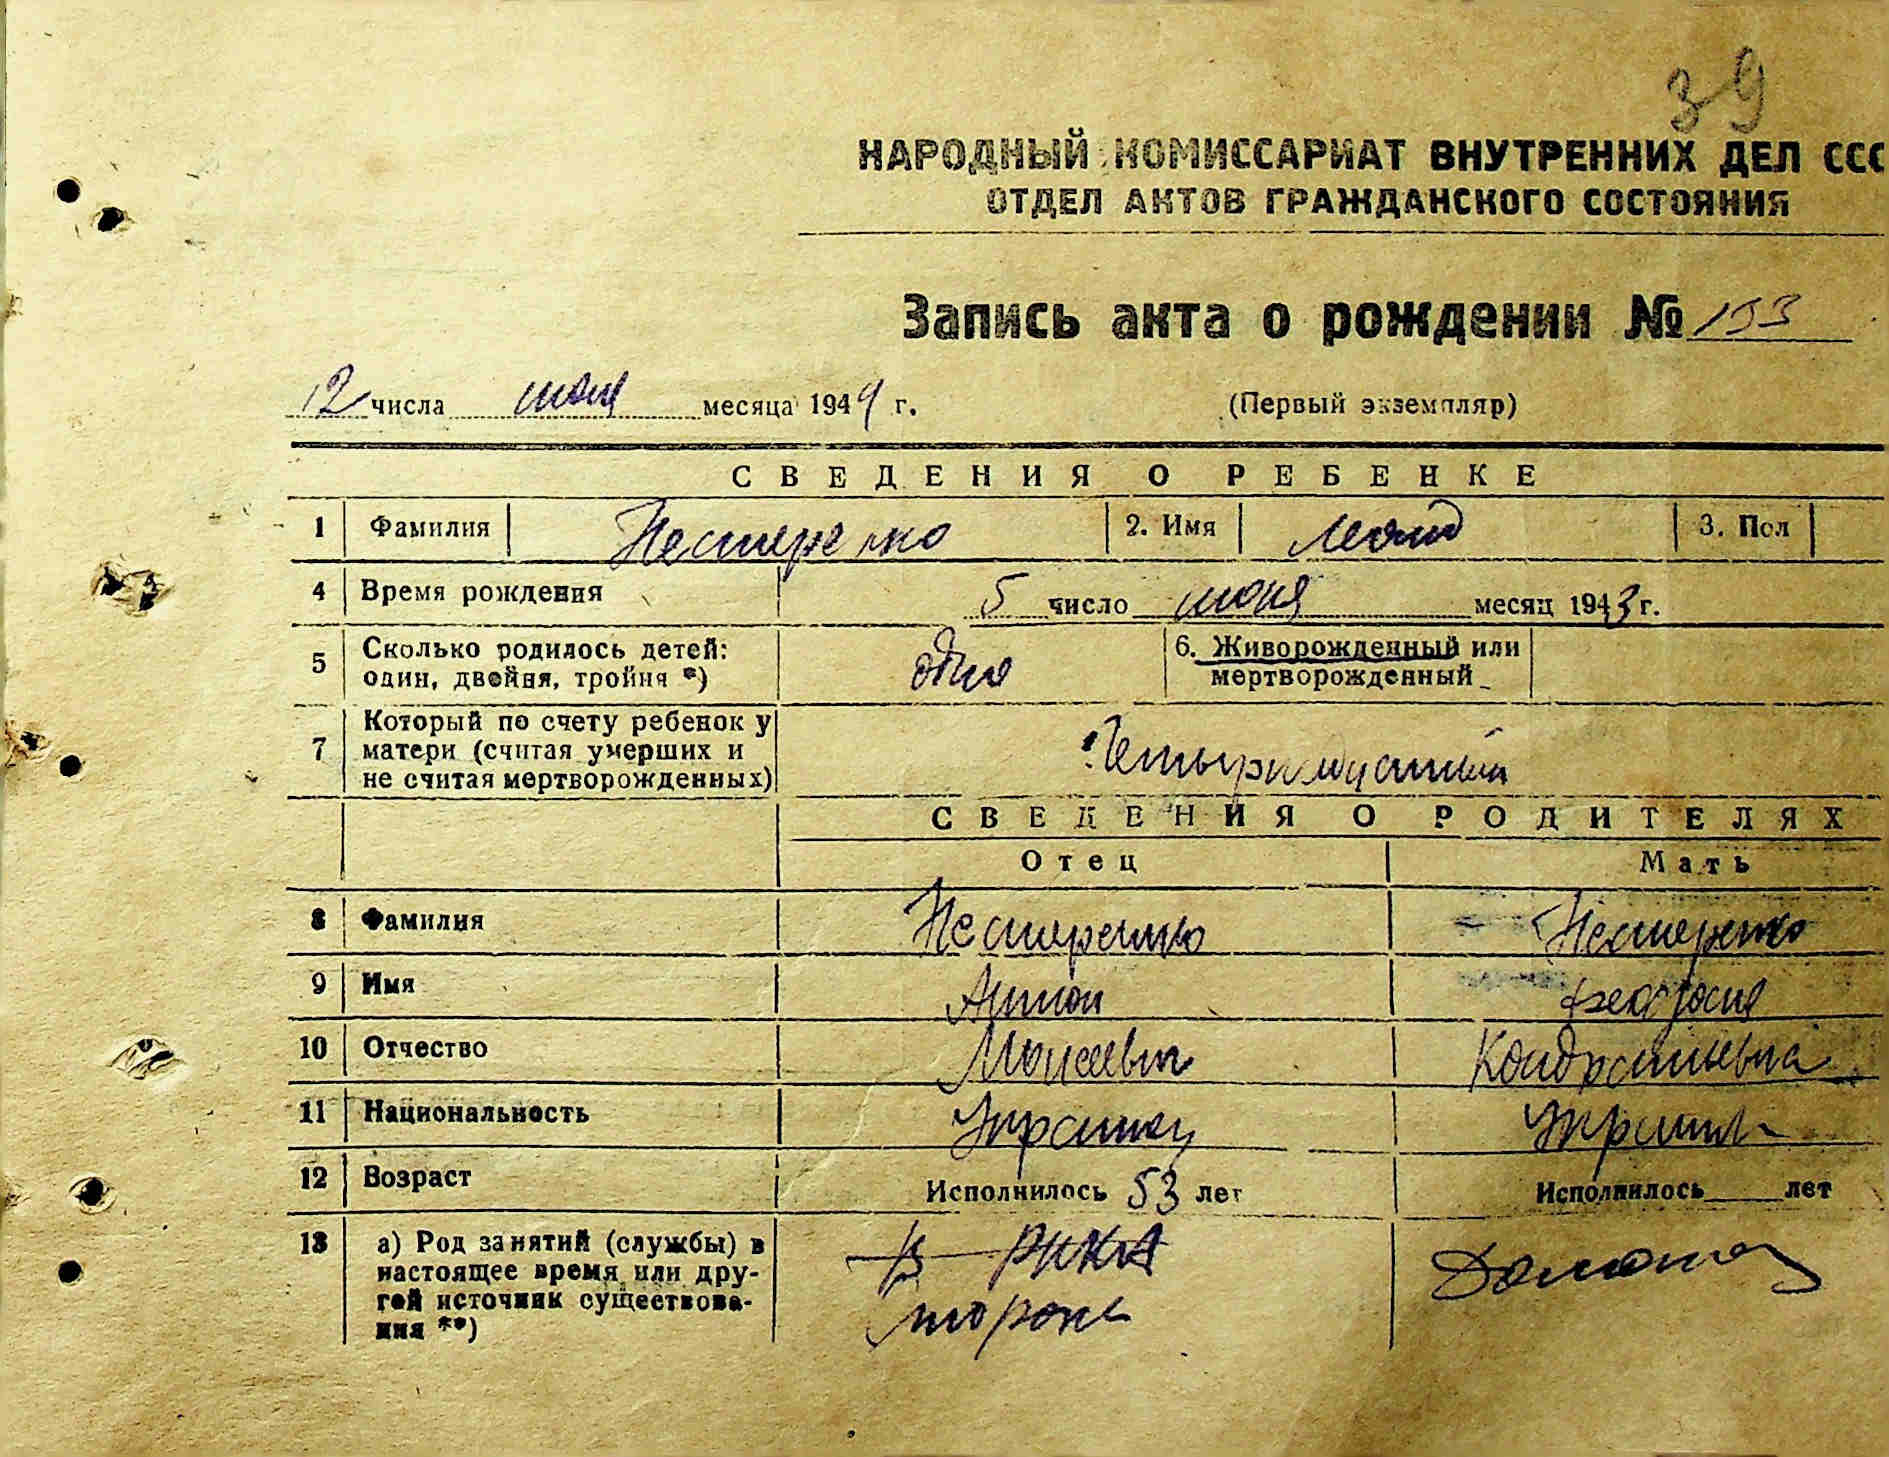 39
НАРОДНЫЙ КОМИССАРИАТ ВНУТРЕННИХ ДЕЛ ССС
ОТДЕЛ АКТОВ ГРАЖДАНСКОГО СОСТОЯНИЯ
Запись акта о рождении № 193
12 числа июня месяца 1944 г. (Первый экземпляр)
СВЕДЕНИЯ О РЕБЕНКЕ
1 Фамилия Нестеренко 2. Имя Леонид 3. Пол
4 Время рождения 5 число июня месяц 1943 г.
5 Сколько родилось детей: один, двойня, тройня *) один 6. Живорожденный или мертворожденный
7 Который по счету ребенок у матери (считая умерших и не считая мертворожденных)
СВЕДЕНИЯ О РОДИТЕЛЯХ
Отец Мать
8 Фамилия Нестеренко Нестеренко
9 Имя Антон Феодосия
10 Отчество Моисеевич Кондратьевна
11 Национальность Украинец Украин
12 Возраст Исполнилось 53 лет Исполнилось лет
13 а) Род занятий (службы) в настоящее время или другой источник существования **) В РККА Домохоз